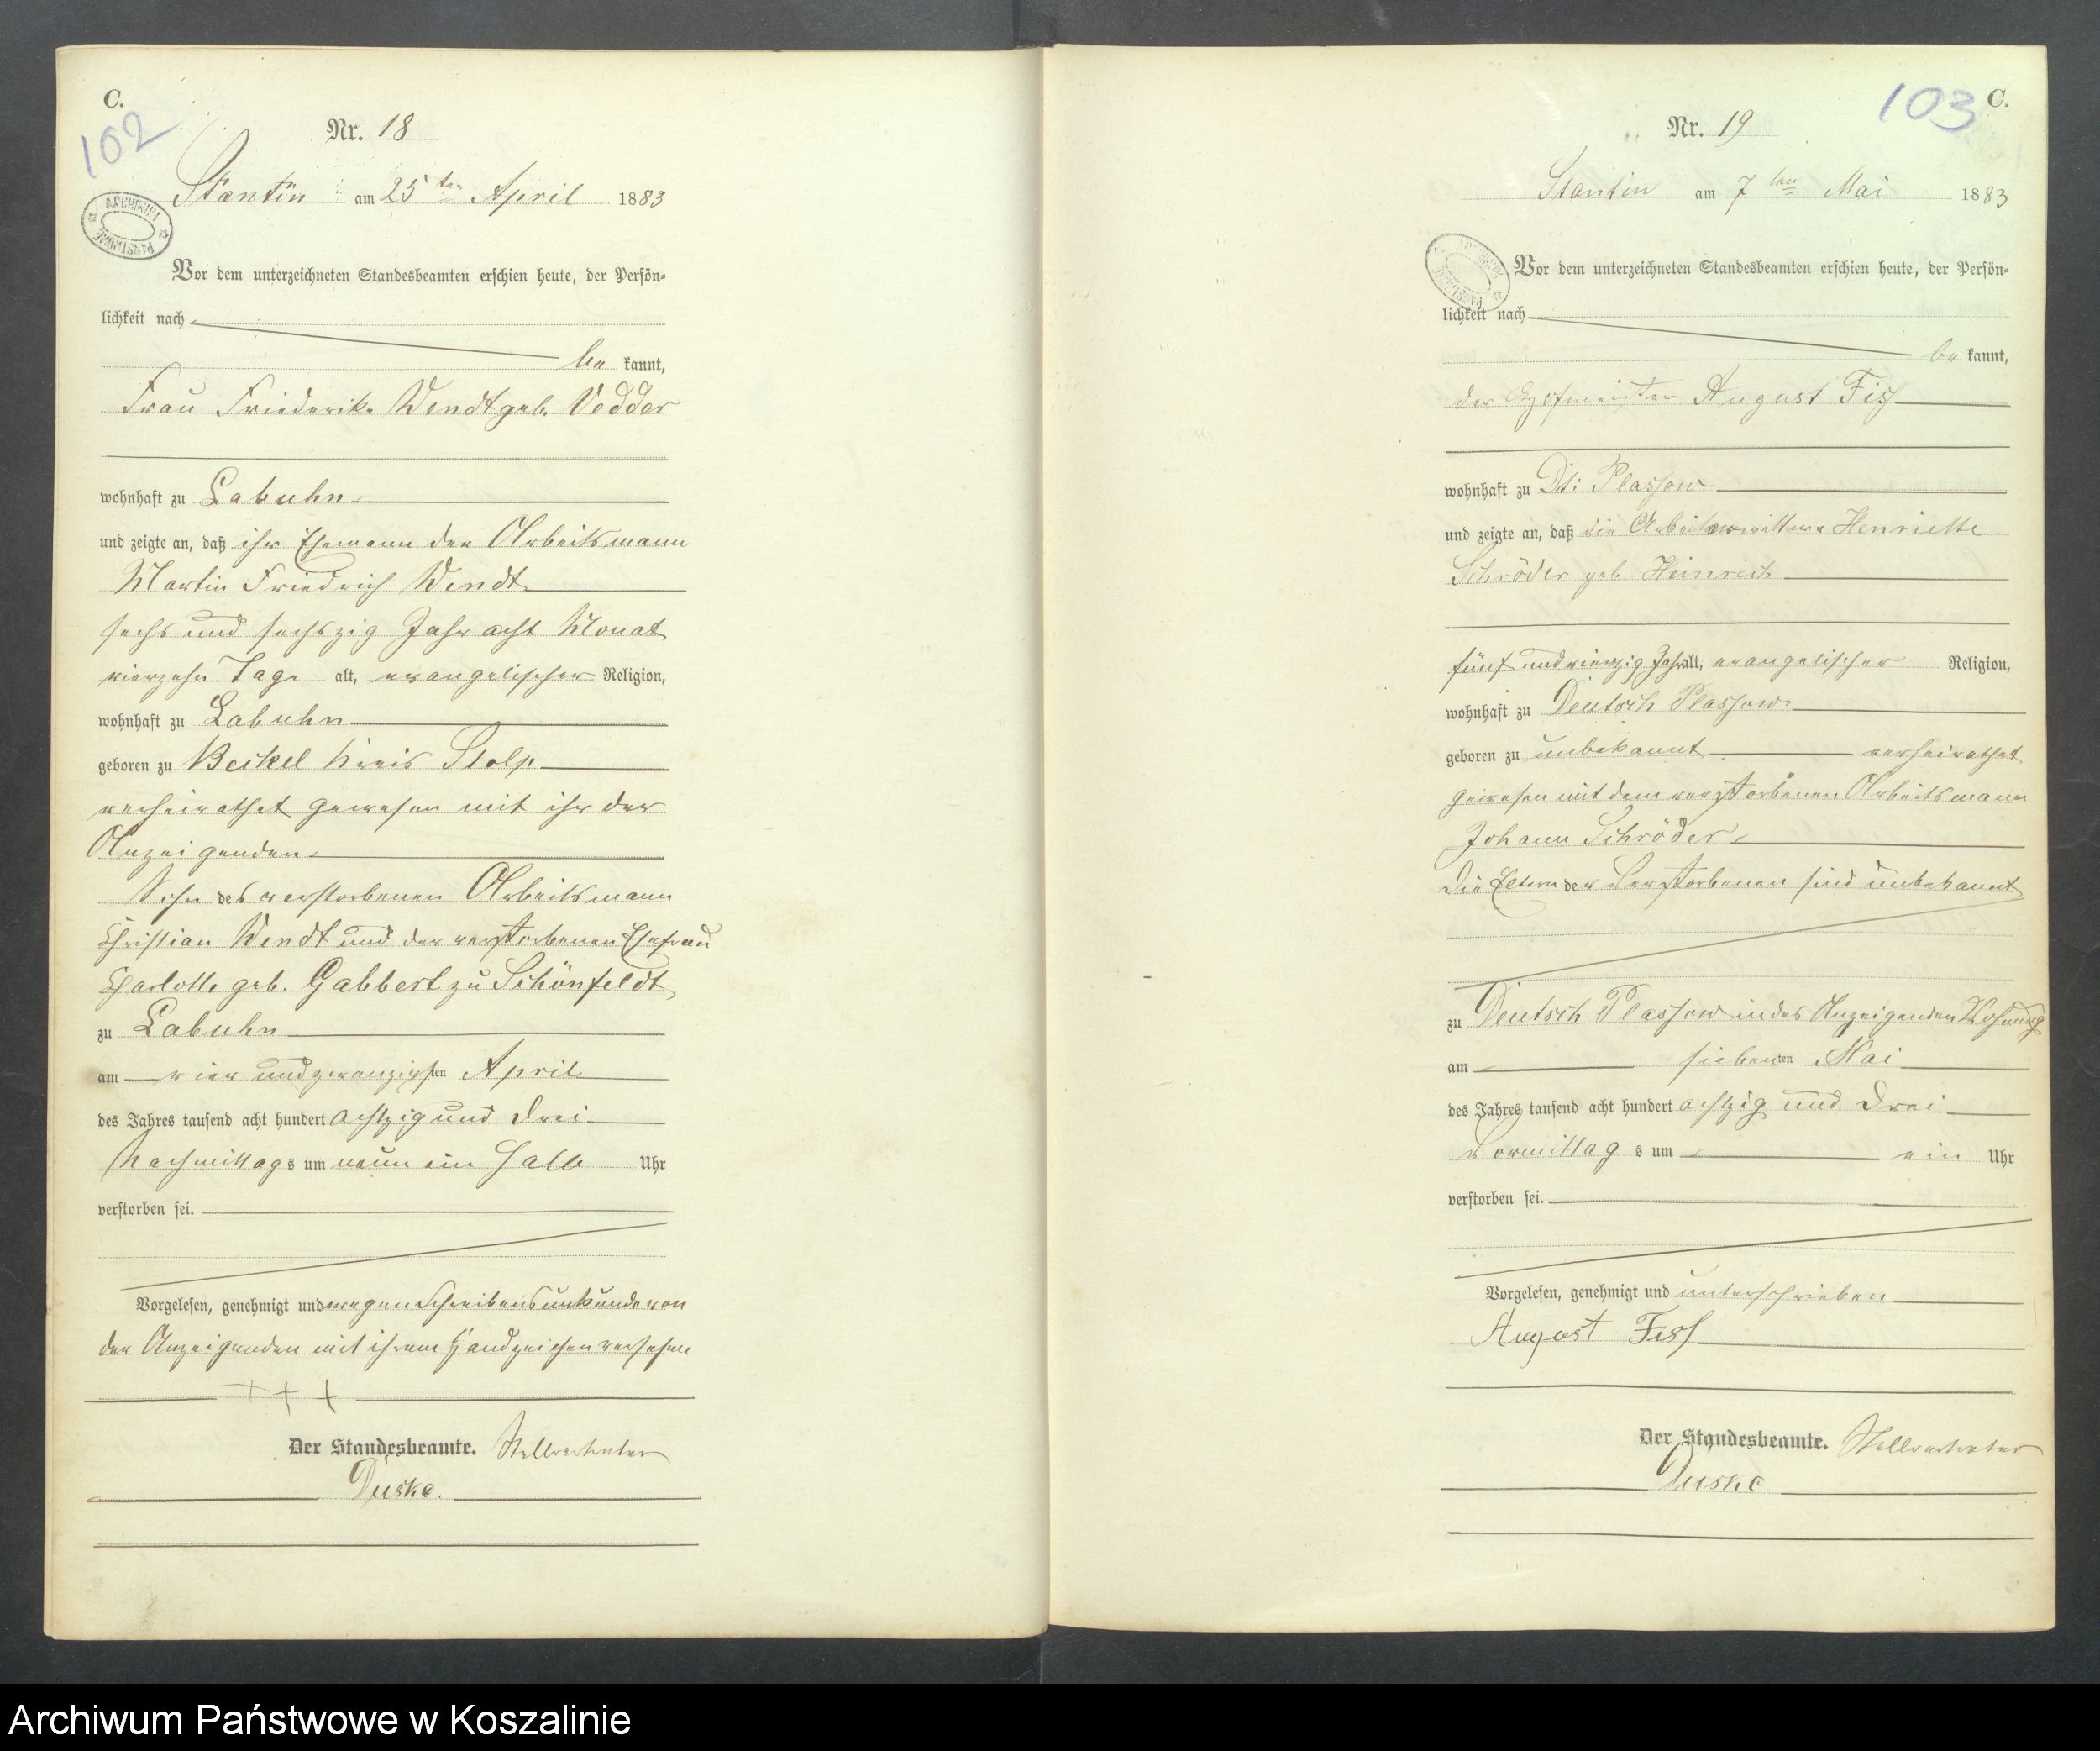 C.
102
Nr. 18
Stantin am 25ten April 1883
ARCHIWUM PAŃSTWOWE
Vor dem unterzeichneten Standesbeamten erschien heute, der Persön-
lichkeit nach
be kannt,
Frau Friederike Wendt geb. Vedder
wohnhaft zu Labuhn
und zeigte an, daß ihr Ehemann der Arbeitsmann
Martin Friedrich Wendt
sechs und sechszig Jahr acht Monat
vierzehn Tage alt, evangelischer Religion,
wohnhaft zu Labuhn
geboren zu Beckel Kreis Stolp
verheirathet gewesen mit ihr der
Anzeigenden
Sohn des verstorbenen Arbeitsmann
Christian Wendt und der verstorbenen Ehefrau
Charlotte geb. Gabbert zu Schönfeldt
zu Labuhn
am vier und zwanzigsten April
des Jahres tausend acht hundert achtzig und drei
Nachmittags um neun ein halb Uhr
verstorben sei.
Vorgelesen, genehmigt und wegen Schreibensunkunde von
der Anzeigenden mit ihrem Handzeichen versehen
+ + +
Der Standesbeamte. Stellvertreter
Duske.
103 C.
Nr. 19
Stantin am 7ten Mai 1883
ARCHIWUM PAŃSTWOWE
Vor dem unterzeichneten Standesbeamten erschien heute, der Persön-
lichkeit nach
be kannt,
der Hofmeister August Fiss
wohnhaft zu Dt: Plassow
und zeigte an, daß die Arbeiterwittwe Henriette
Schröder geb. Heinrich
fünf und vierzig Jahr alt, evangelischer Religion,
wohnhaft zu Deutsch Plassow
geboren zu unbekannt verheirathet
gewesen mit dem verstorbenen Arbeitsmann
Johann Schröder
Die Eltern der Verstorbenen sind unbekannt
zu Deutsch Plassow in des Anzeigenden Wohnung
am siebenten Mai
des Jahres tausend acht hundert achtzig und drei
Vormittags um ein Uhr
verstorben sei.
Vorgelesen, genehmigt und unterschrieben
August Fiss
Der Standesbeamte. Stellvertreter
Duske
Archiwum Państwowe w Koszalinie